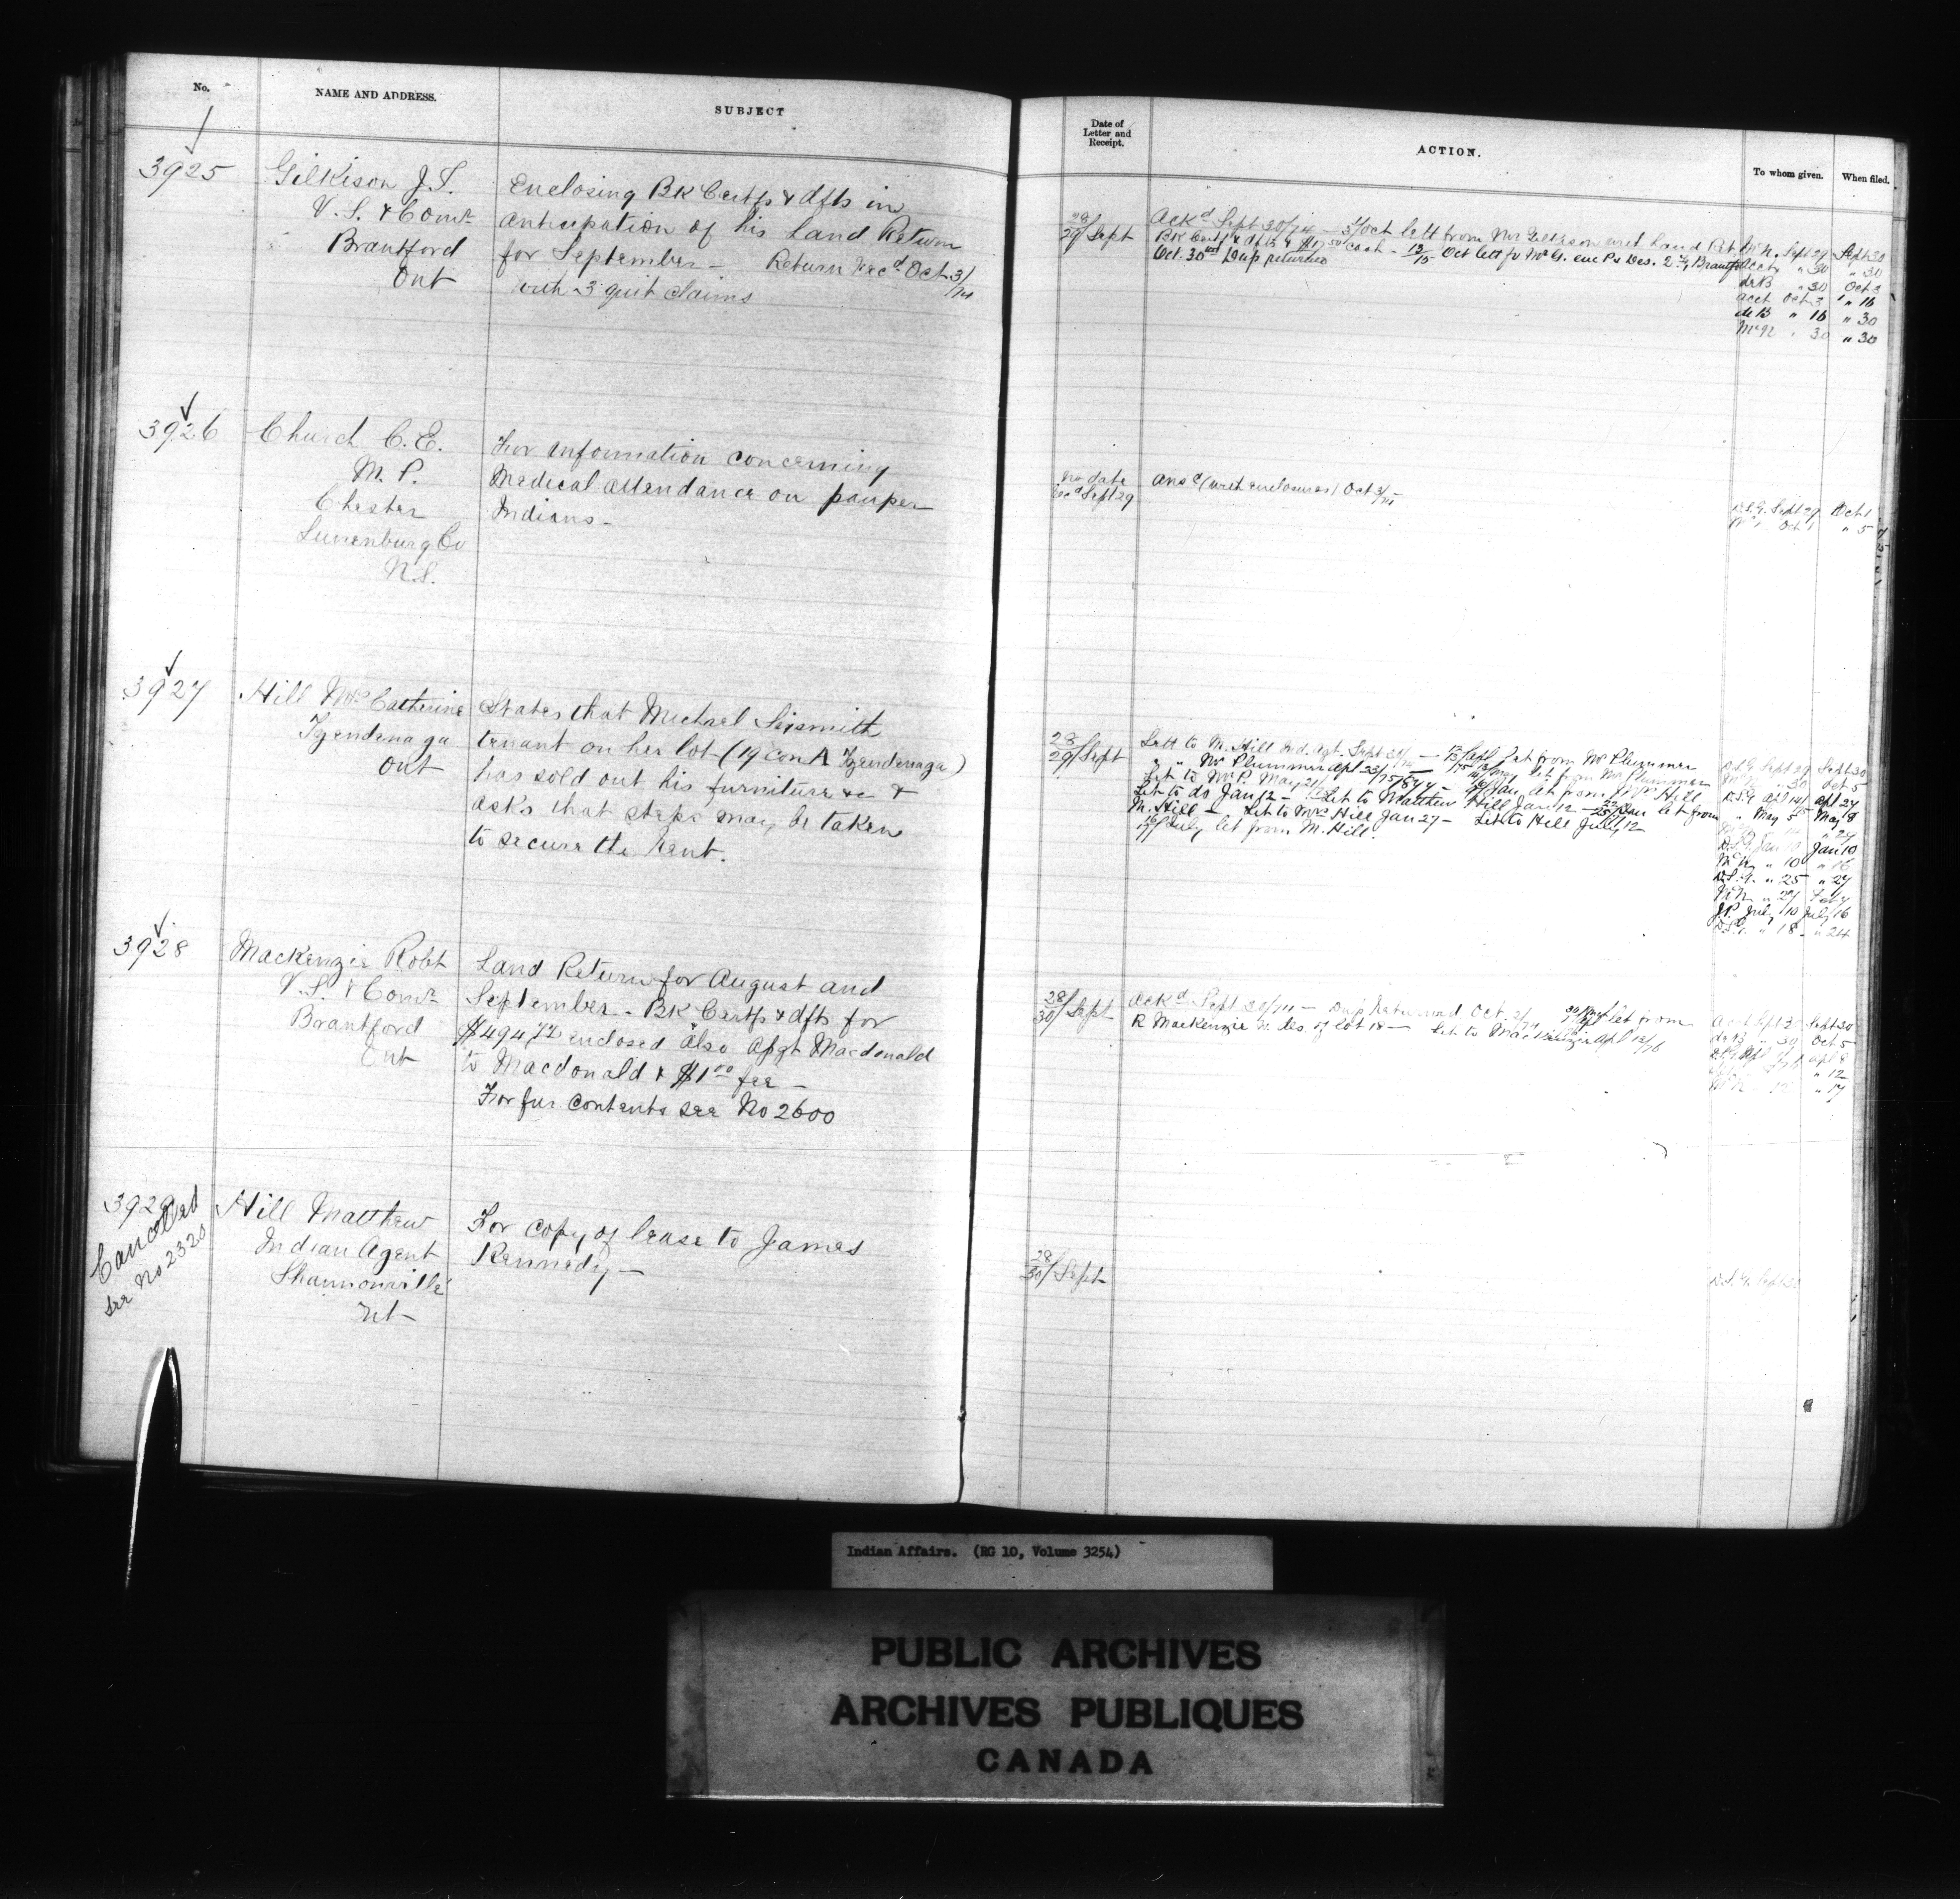 No.
NAME AND ADDRESS.
SUBJECT
3925
Gilkison J.S.
V. S. & Comr
Brantford
Ont
Enclosing BK Certfs & dfts in
anticipation of his Land Return
for September — Return Recd Oct 3/74
with 3 quit claims
3926
Church C. E.
M. P.
Chester
Lunenburg Co
N.S.
For information concerning
Medical attendance on pauper
Indians -
3927
Hill Mrs Catherine
Tyendenaga
Ont
States that Michael Sixsmith
tenant on her lot (19 Con A Tyendenaga)
has sold out his furniture &c &
asks that steps may be taken
to secure the Rent.
3928
Mackenzie Robt
V. S. & Comr
Brantford
Ont
Land Return for August and
September - BK Certfs & dfts for
enclosed also Asgt Macdonald
to Macdonald & $1.00 fee -
For fur contents see No 2600
3929
Cancelled
see No 2320
Hill Matthew
Indian Agent
Shannonville
Ont
For copy of lease to James
Kennedy —
Date of
Letter and
Receipt.
ACTION.
To whom given.
When filed.
28/29 Sept
Ackd Sept 30/74 — Oct lett from Mr Gilkison with Land Ret
BK Certfs & dfts & cash - 13/15 Oct lett fr Mr G. enc
Oct. 30 Dup returned
Sept 29 Sept 30
" 30 " 30
" 30 Oct 3
acct Oct 3 " 16
deB " 16 " 30
McN " 30 " 30
No date
Recd Sept 29
Ansd (with enclosures) Oct 3/74
D.S.G. Sept 29 Oct 1
Oct 1 " 5
28/29 Sept
Lett to M. Hill Ind. Agt. Sept — Apl Let from Mr Plummer
" " Mr Plummer Apl 23/75 — May let from Mr Plummer
Let to Mr P. May 21/ — Jan let from Hill
Let to do Jan 12 — Let to Matthew Hill Jan 12 — Jan let from
M. Hill — Let to Mrs Hill Jan 27 — Let to Hill July 12
July let from M. Hill
D.S.G. Sept 29 Sept 30
" 30 Oct 5
D.S.G Apl Apl 24
" May 5 May 8
D.S.G. Jan 10 Jan 10
" 10 " 16
D.S.G. " 25 " 27
J.P. July 10 July 16
D.S.G. " 18 " 24
28/30 Sept
Ackd Sept — Dup Returned Oct. — let from
R Mackenzie lot 18 — Let to Mackenzie Apl 12/76
Acct Sept 30 Sept 30
deB " 30 Oct 5
Apl 8
" 12
" 17
28/30 Sept
D.S.G. Sept 30
Indian Affairs. (RG 10, Volume 3254)
PUBLIC ARCHIVES
ARCHIVES PUBLIQUES
CANADA